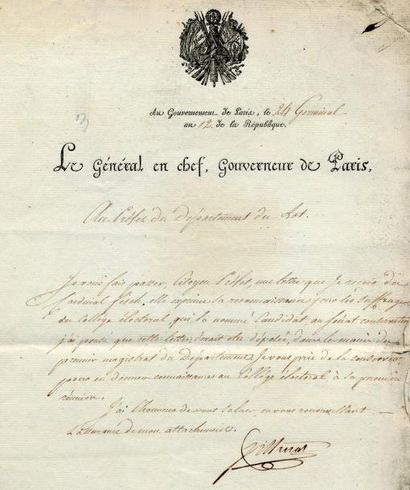 Au Gouvernement de Paris, le 24 Germinal
an 12 de la République.
Le Général en chef, Gouverneur de Paris,
Au Préfet du département du Lot.
Je vous fais passer, Citoyen Préfet, une lettre que je reçois du
Cardinal Fesch. elle exprime sa reconnaissance pour les suffrages
du Collège électoral qui l'a nommé Candidat au Sénat conservateur
j'ai pensé que cette lettre devait être déposée, dans les mains du
premier magistrat du département. Je vous prie de la conserver
pour en donner connaissance au Collège électoral à sa première
réunion.
J'ai l'honneur de vous saluer en vous renouvellant
l'assurance de mon attachement.
Murat